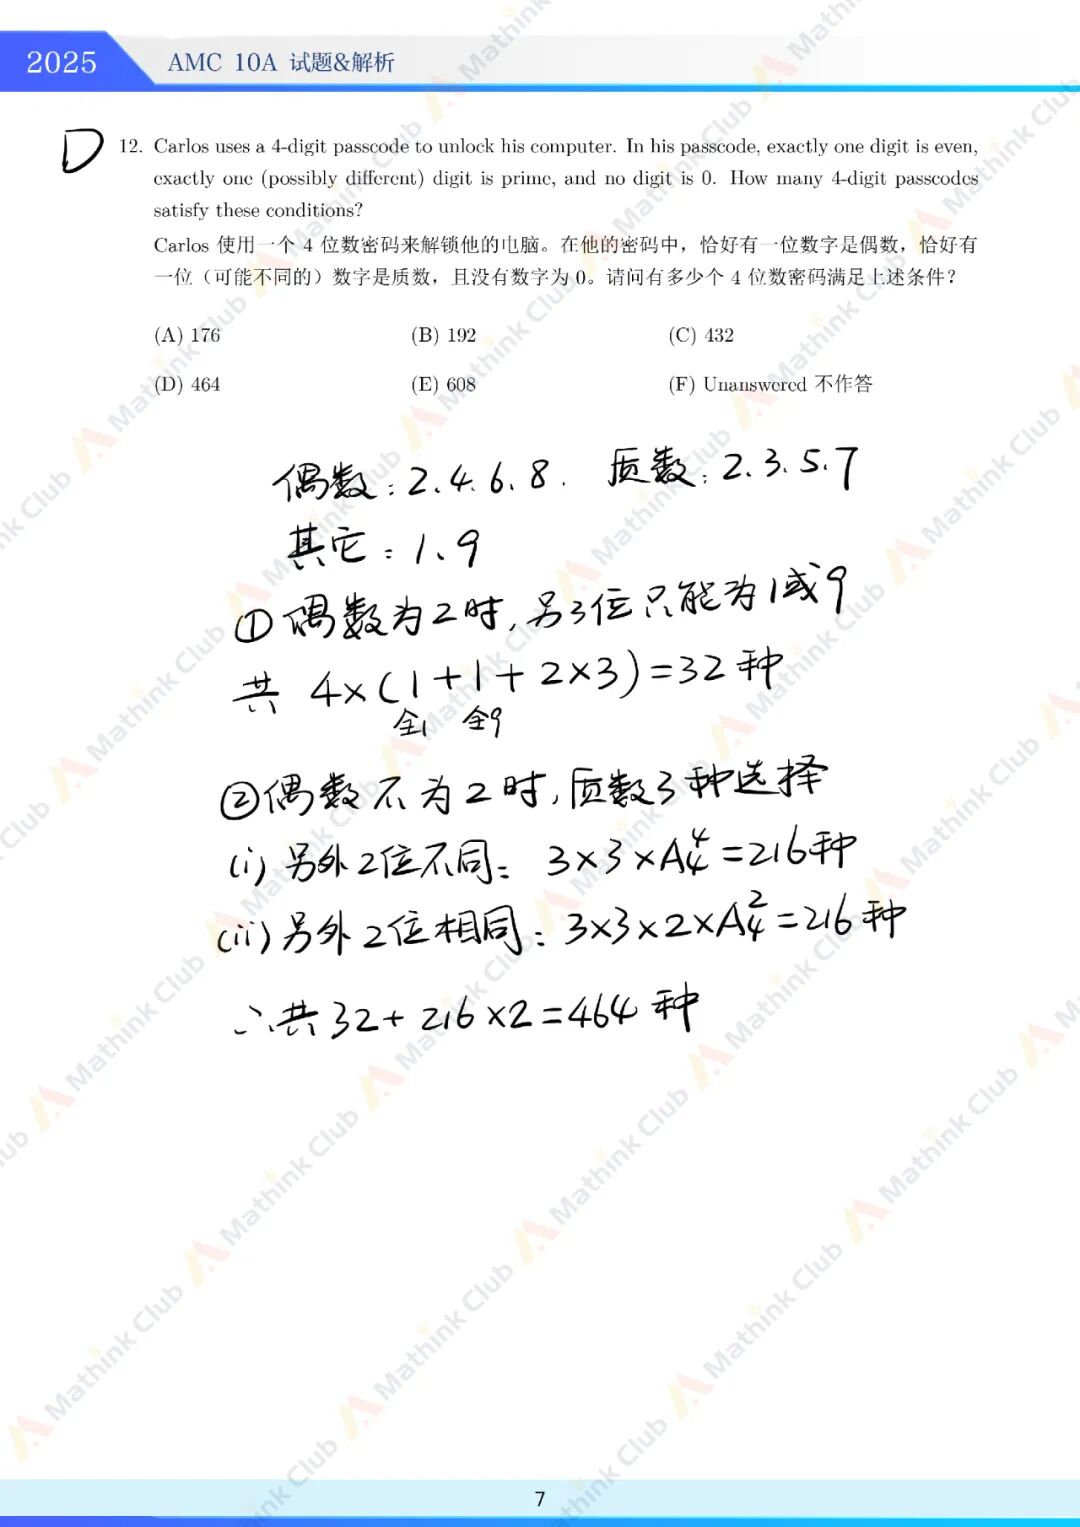 2025
AMC 10A 试题&解析
D
12. Carlos uses a 4-digit passcode to unlock his computer. In his passcode, exactly one digit is even,
exactly one (possibly different) digit is prime, and no digit is 0. How many 4-digit passcodes
satisfy these conditions?
Carlos 使用一个 4 位数密码来解锁他的电脑。在他的密码中，恰好有一位数字是偶数，恰好有
一位（可能不同的）数字是质数，且没有数字为 0。请问有多少个 4 位数密码满足上述条件？
(A) 176 (B) 192 (C) 432
(D) 464 (E) 608 (F) Unanswered 不作答
偶数：2.4.6.8. 质数：2.3.5.7
其它：1、9
①偶数为2时，另3位只能为1或9
共 4×(1+1+2×3)=32种
全1 全9
②偶数不为2时，质数3种选择
(i) 另外2位不同： 3×3×A₄⁴=216种
(ii) 另外2位相同：3×3×2×A₄²=216种
∴共32+216×2=464种
7
Mathink Club